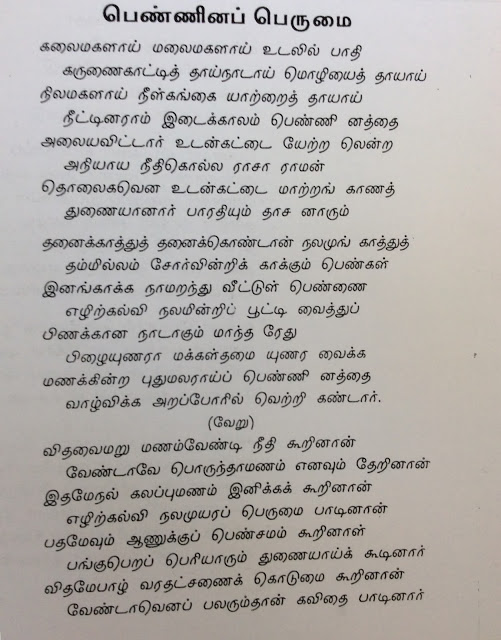 பெண்ணினப் பெருமை
கலைமகளாய் மலைமகளாய் உடலில் பாதி
கருணைகாட்டித் தாய்நாடாய் மொழியைத் தாயாய்
நிலமகளாய் நீள்கங்கை யாற்றைத் தாயாய்
நீட்டினராம் இடைக்காலம் பெண்ணி னத்தை
அலையவிட்டார் உடன்கட்டை யேற்ற லென்ற
அநியாய நீதிகொல்ல ராசா ராமன்
தொலைகவென உடன்கட்டை மாற்றங் காணத்
துணையானார் பாரதியும் தாச னாரும்
தனைக்காத்துத் தனைக்கொண்டான் நலமுங் காத்துத்
தம்மில்லம் சோர்வின்றிக் காக்கும் பெண்கள்
இனங்காக்க நாமறந்து வீட்டுள் பெண்ணை
எழிற்கல்வி நலமின்றிப் பூட்டி வைத்துப்
பிணக்கான நாடாகும் மாந்த ரேது
பிழையுணரா மக்கள்தமை யுணர வைக்க
மணக்கின்ற புதுமலராய்ப் பெண்ணி னத்தை
வாழ்விக்க அறப்போரில் வெற்றி கண்டார்.
(வேறு)
விதவைமறு மணம்வேண்டி நீதி கூறினான்
வேண்டாவே பொருந்தாமணம் எனவும் தேறினான்
இதமேநல் கலப்புமணம் இனிக்கக் கூறினான்
எழிற்கல்வி நலமுயரப் பெருமை பாடினான்
பதமேவும் ஆணுக்குப் பெண்சமம் கூறினாள்
பங்குபெறப் பெரியாரும் துணையாய்க் கூடினார்
விதமேபாழ் வரதட்சணைக் கொடுமை கூறினான்
வேண்டாவெனப் பலரும்தான் கவிதை பாடினார்